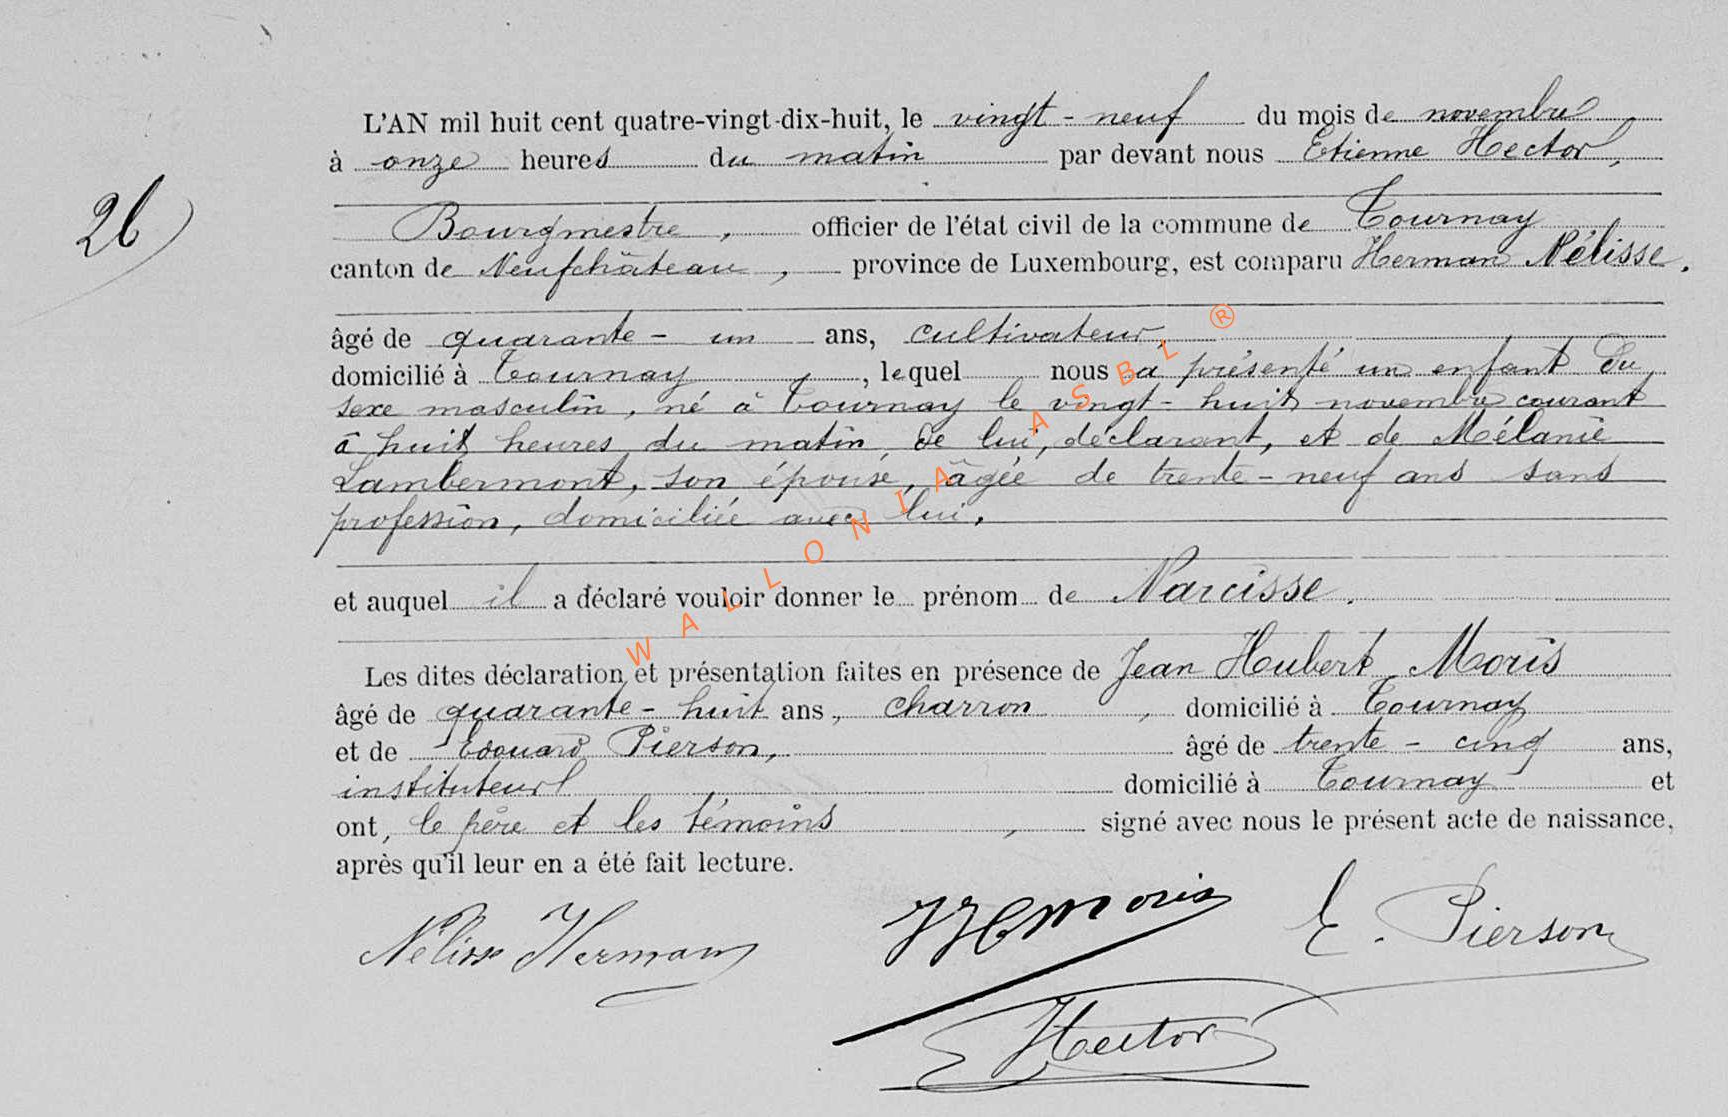 L'AN mil huit cent quatre-vingt-dix-huit, le vingt-neuf du mois de novembre
à onze heures du matin par devant nous Etienne Hector,
26
Bourgmestre, officier de l'état civil de la commune de Tournay
canton de Neufchâteau, province de Luxembourg, est comparu Herman Nélisse.
âgé de quarante-un ans, cultivateur,
domicilié à Tournay, lequel nous a présenté un enfant du
sexe masculin, né à Tournay le vingt-huit novembre courant
à huit heures du matin, de lui, déclarant, et de Mélanie
Lambermont, son épouse, âgée de trente-neuf ans sans
profession, domiciliée avec lui.
et auquel il a déclaré vouloir donner le prénom de Narcisse.
Les dites déclaration et présentation faites en présence de Jean Hubert Moris
âgé de quarante-huit ans, charron, domicilié à Tournay
et de Edouard Pierson, âgé de trente-cinq ans,
instituteur domicilié à Tournay et
ont, le père et les témoins, signé avec nous le présent acte de naissance,
après qu'il leur en a été fait lecture.
Nélisse Herman JH Moris E. Pierson
Hector
WALLONIA ASBL ®